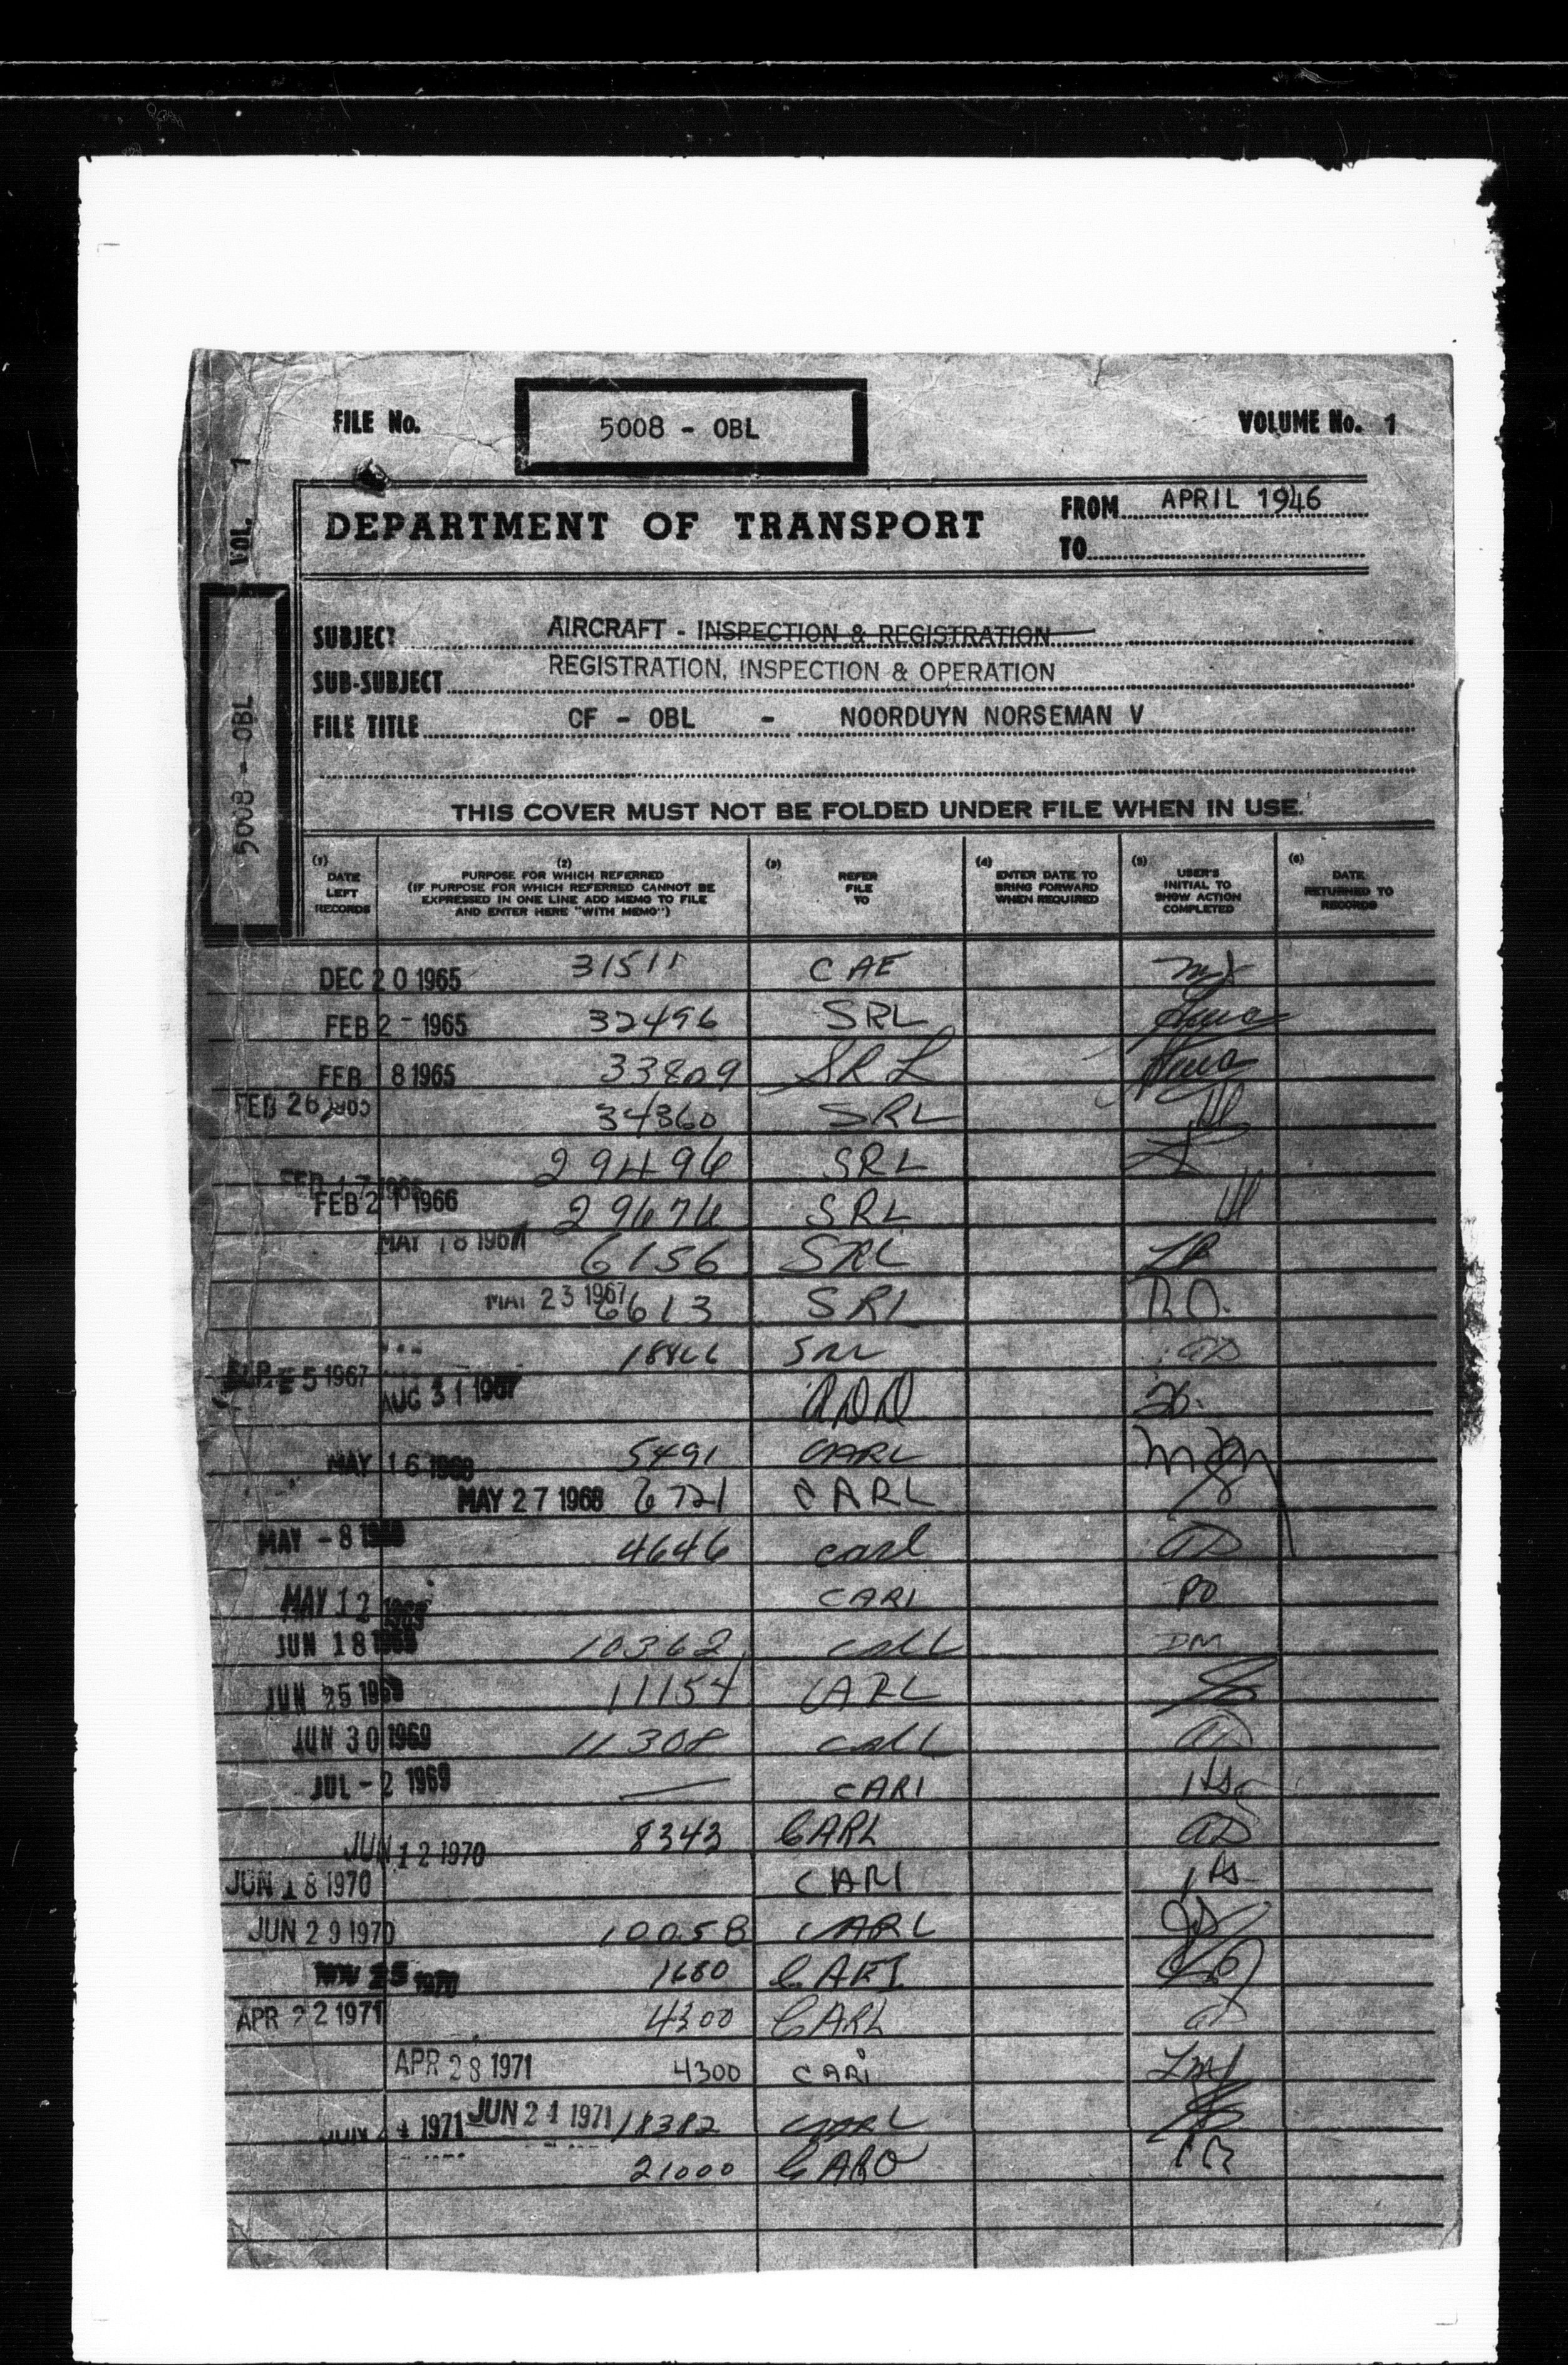 FILE No. 5008 - OBL VOLUME No. 1
VOL. 1
5008 - OBL
DEPARTMENT OF TRANSPORT
FROM APRIL 1946
TO
SUBJECT AIRCRAFT - INSPECTION & REGISTRATION
SUB-SUBJECT REGISTRATION, INSPECTION & OPERATION
FILE TITLE CF - OBL - NOORDUYN NORSEMAN V
THIS COVER MUST NOT BE FOLDED UNDER FILE WHEN IN USE.
(1) DATE LEFT RECORDS
(2) PURPOSE FOR WHICH REFERRED
(IF PURPOSE FOR WHICH REFERRED CANNOT BE
EXPRESSED IN ONE LINE ADD MEMO TO FILE
AND ENTER HERE "WITH MEMO")
(3) REFER FILE TO
(4) ENTER DATE TO BRING FORWARD WHEN REQUIRED
(5) USER'S INITIAL TO SHOW ACTION COMPLETED
(6) DATE RETURNED TO RECORDS
DEC 20 1965 31511 CAE
FEB 2 - 1965 32496 SRL
FEB 18 1965 33809 SRL
FEB 26 1965 34360 SRL
FEB 17 1966 29496 SRL
FEB 21 1966 29676 SRL
MAY 18 1967 6156 SRL LR
MAY 23 1967 6613 SRL R.O.
18466 SRL AD
SEP 25 1967
AUG 31 1967
MAY 16 1968 5491 CARL
MAY 27 1968 6721 CARL
MAY - 8 1969 4646 carl AD
MAY 12 1969 CARL PO
JUN 18 1969 10362 carl DM
JUN 25 1969 11154 CARL
JUN 30 1969 11308 carl AD
JUL - 2 1969 — CARL
JUN 12 1970 8343 CARL AD
JUN 18 1970 CARL
JUN 29 1970 10058 CARL
NOV 25 1970 1680 CAEI
APR 22 1971 4300 CARL AD
APR 28 1971 4300 CARL
1971 JUN 21 1971 18382 CARL
21000 CARO